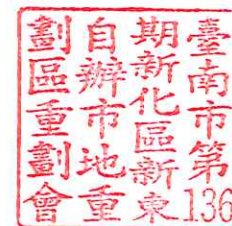 臺南市第136
期新化區新東
自辦市地重
劃區重劃會